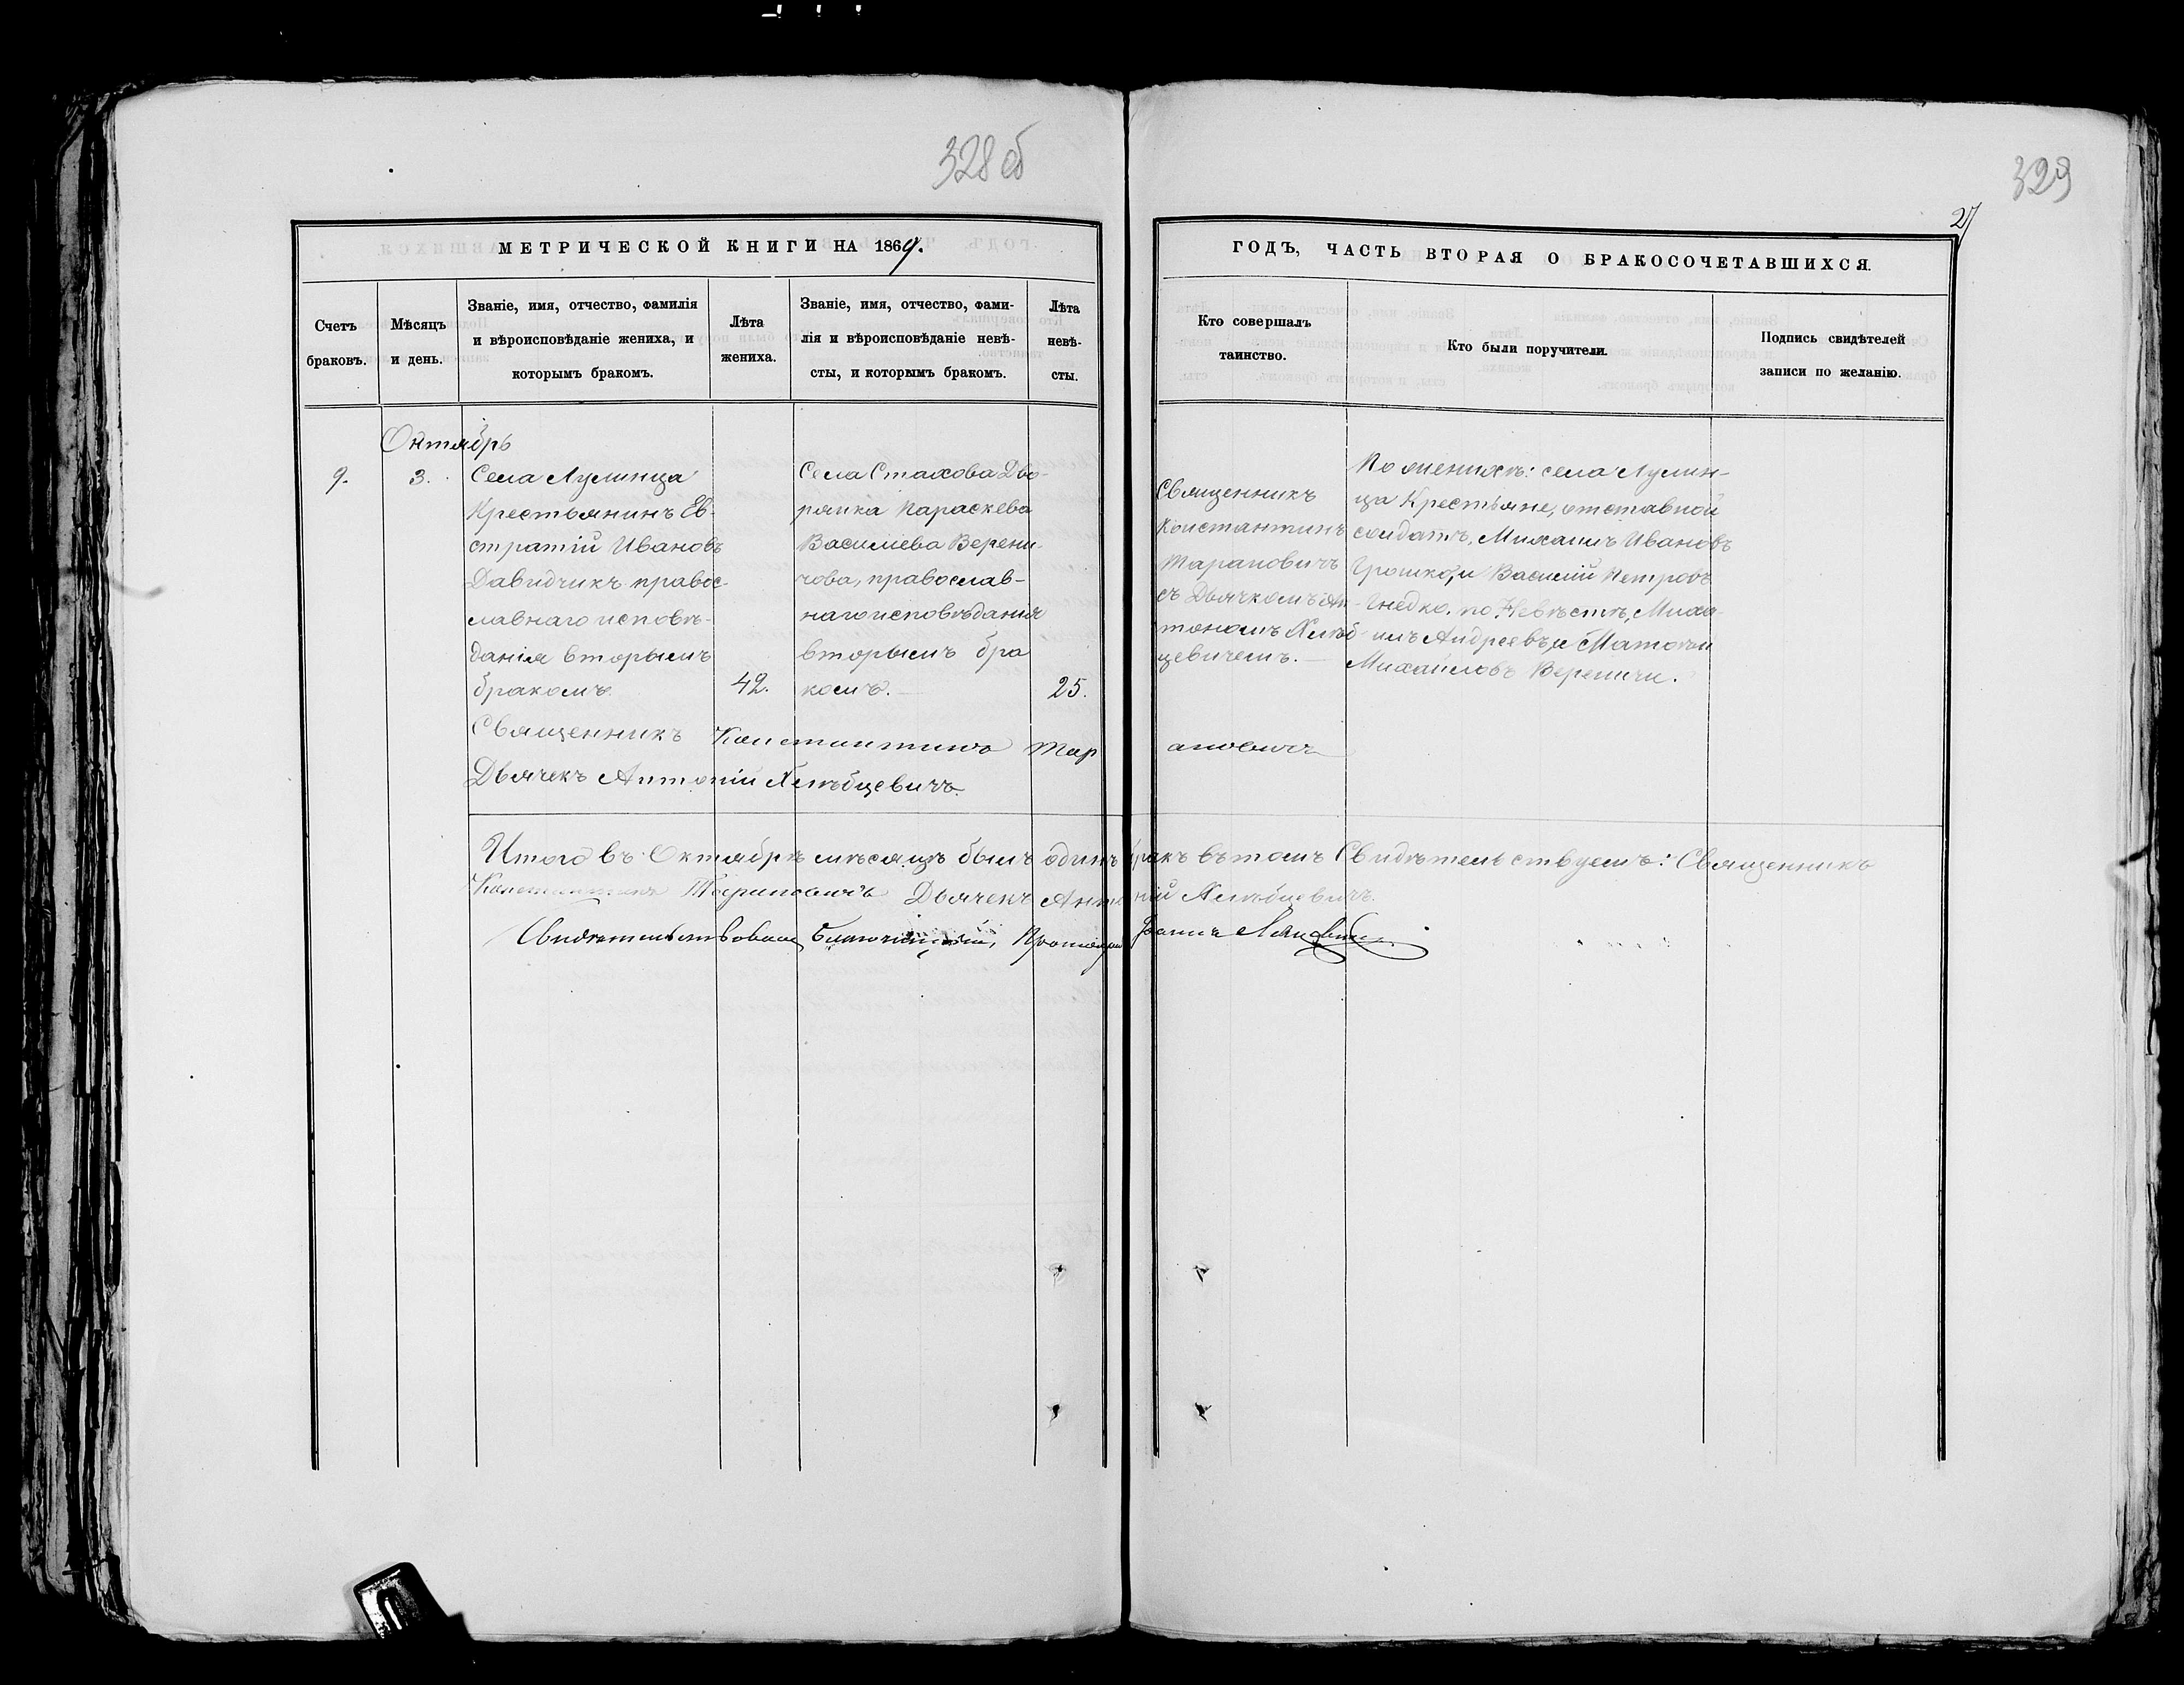 328 об
329
27
МЕТРИЧЕСКОЙ КНИГИ НА 1869.
ГОДЪ, ЧАСТЬ ВТОРАЯ О БРАКОСОЧЕТАВШИХСЯ.
Счетъ
браковъ.
Мѣсяцъ
и день.
Званіе, имя, отчество, фамилія
и вѣроисповѣданіе жениха, и
которымъ бракомъ.
Лѣта
жениха.
Званіе, имя, отчество, фами-
лія и вѣроисповѣданіе невѣ-
сты, и которымъ бракомъ.
Лѣта
невѣ-
сты.
Кто совершалъ
таинство.
Кто были поручители.
Подпись свидѣтелей
записи по желанію.
Октябрь
9.
3.
Села Лулинца
Крестьянинъ Ев-
стратій Ивановъ
Давидчикъ правос-
лавнаго исповѣ-
данія вторымъ
бракомъ
42.
Села Стахова Дво-
рянка Параскева
Василіева Верени-
чова, православ-
наго исповѣданія
вторымъ бра
комъ.
25.
Священникъ
Константинъ
Тарановичъ
съ Дьячкомъ Ан-
тономъ Хлѣб-
цевичемъ.
По женихѣ: села Лулин-
ца Крестьяне, отставной
солдатъ, Михаилъ Ивановъ
Грошко, и Василій Петровъ
Гнедко. по Невѣстѣ, Миха-
илъ Андреевъ, и Матѳей
Михайловъ Вереничи.
Священникъ Константинъ Тарановичъ
Дьячекъ Антоній Хлѣбцевичъ
Итого въ Октябрѣ мѣсяцѣ былъ одинъ бракъ въ томъ Свидѣтельствуемъ: Священникъ
Константинъ Тарановичъ Дьячекъ Антоній Хлѣбцевичъ.
Свидѣтельствовалъ Благочинный, Протоіерей Іоаннъ